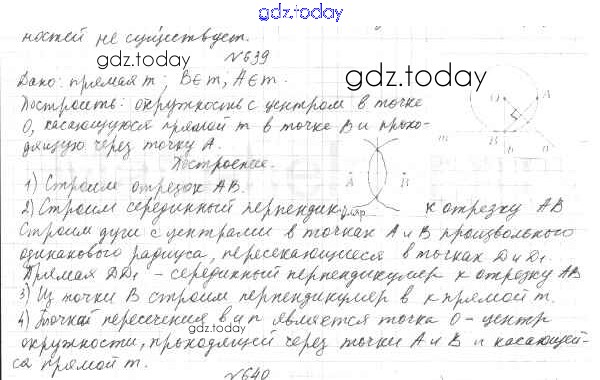 gdz.today
ностей не существует.
№639
Дано: прямая m; B∈m; A∈m.
gdz.today
Построить: окружность с центром в точке
O, касающуюся прямой m в точке B и прохо-
дящую через точку A.
Построение.
1) Строим отрезок AB.
2) Строим серединный перпендикуляр к отрезку AB
Строим дуги с центрами в точках A и B произвольного
одинакового радиуса, пересекающиеся в точках D и D₁.
Прямая DD₁ - серединный перпендикуляр к отрезку AB
3) Из точки B строим перпендикуляр b к прямой m.
4) Точкой пересечения b и n является точка O - центр
gdz.today
окружности, проходящей через точки A и B и касающей-
ся прямой m.
gdz.today
№640
O
A
B
m
n
A
B